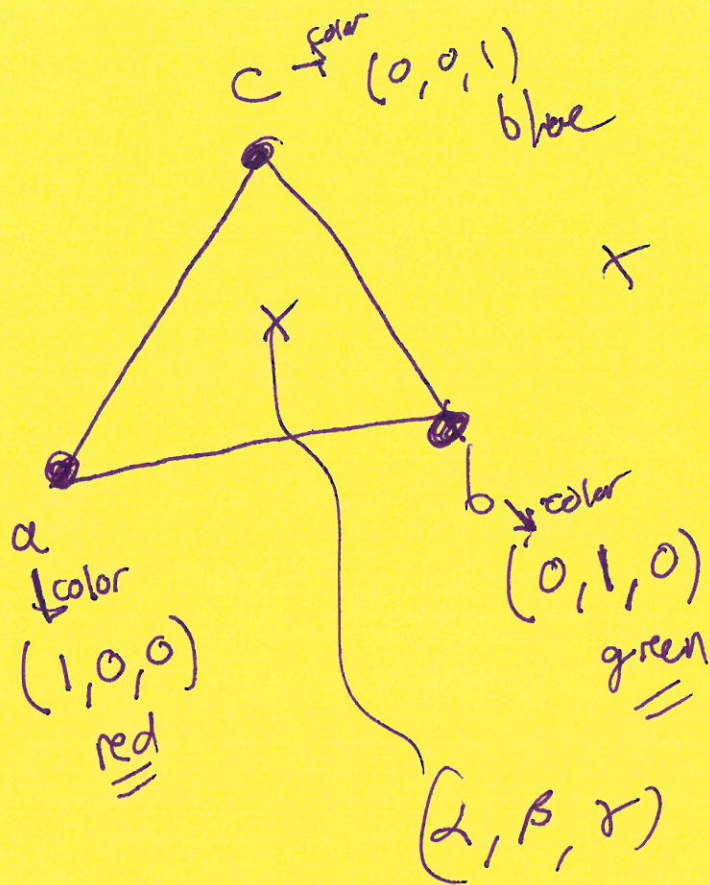 color
C → (0, 0, 1)
blue
x
x
a
↓ color
(1, 0, 0)
red
b ↘ color
(0, 1, 0)
green
(α, β, γ)